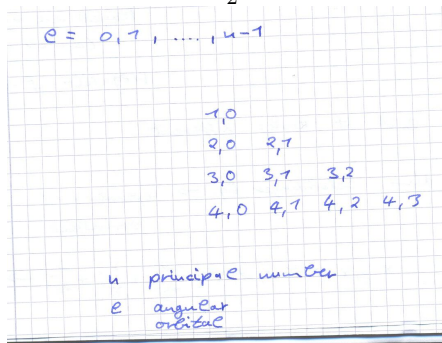 2
ℓ = 0,1, ...., n-1
1,0
2,0 2,1
3,0 3,1 3,2
4,0 4,1 4,2 4,3
n principal number
ℓ angular
orbital